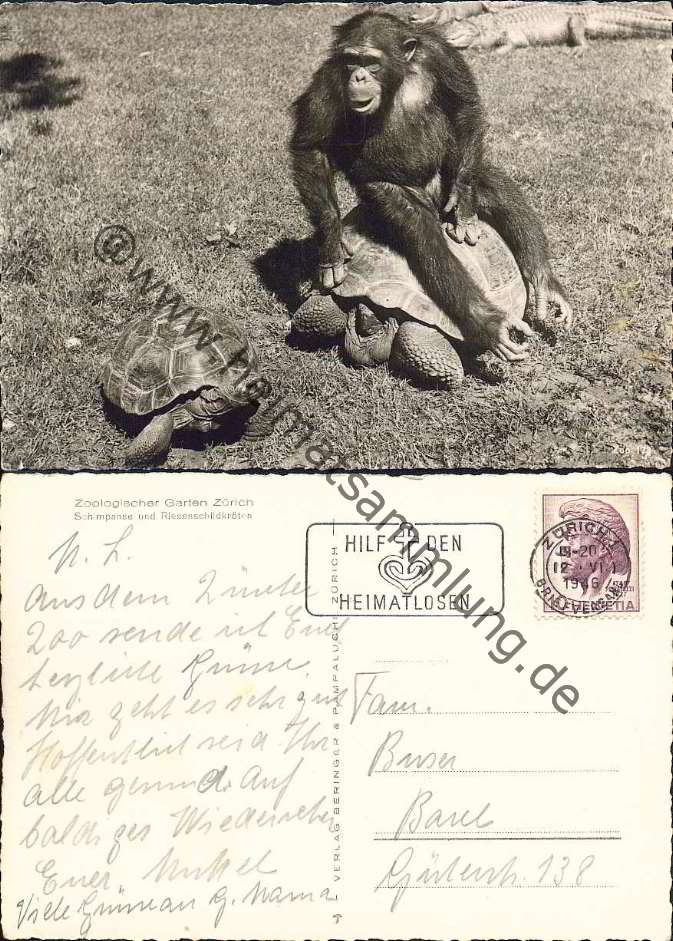 © www.heimatsammlung.de
Zoologischer Garten Zürich
Schimpanse und Riesenschildkröten
N. L.
Aus dem Züricher
Zoo sende ich Euch
herzliche Grüsse.
Mir geht es sehr gut
Hoffentlich seid Ihr
alle gesund. Auf
baldiges Wiedersehen
Euer
Viele Grüsse an G. Mama
VERLAG BERINGER & PAMPALUCHI ZÜRICH
HILF DEN
HEIMATLOSEN
ZÜRICH 1
18-20
12. VI.
1946
BRIEFVERSAND
HELVETIA
Fam.
Buser
Basel
Gürtlerstr. 138